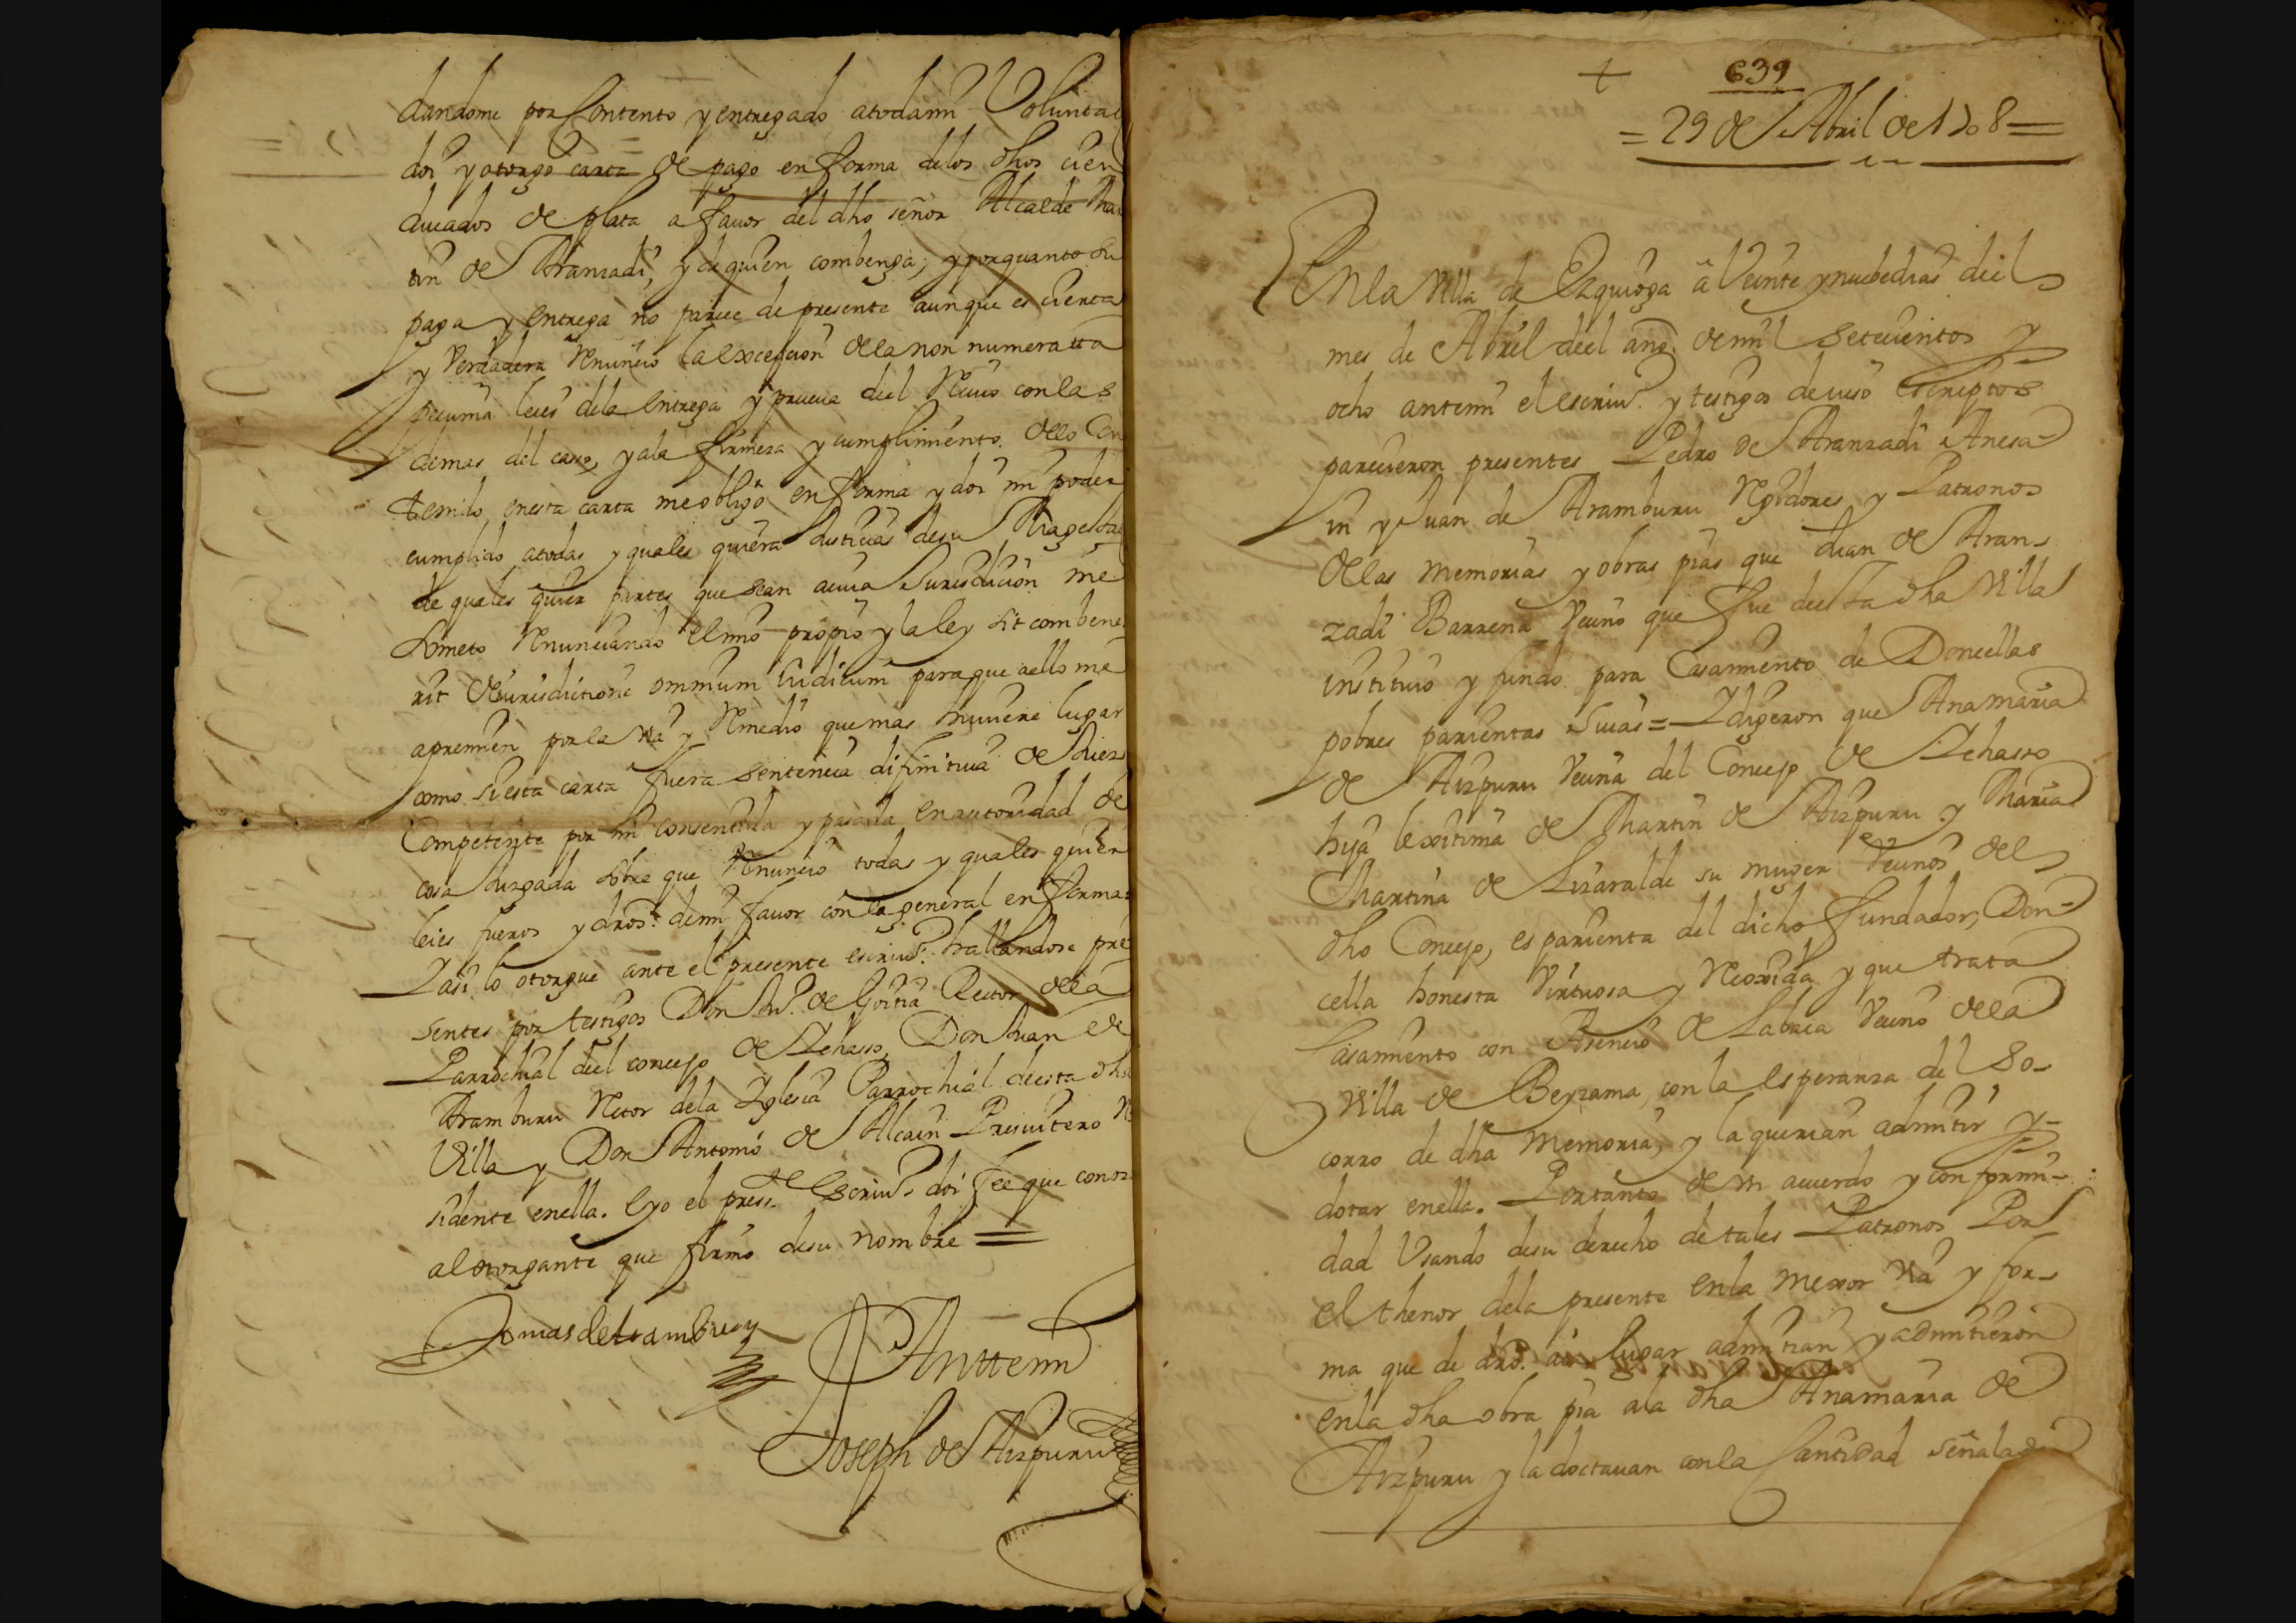 dandome por Contento y entregado atodami Voluntad
doi y otorgo carta de pago en forma de los dhos cien
ducados de plata a fauor del dho señor Alcalde Mar
tin de Aranzadi, y de quien combenga; y porquanto su
paga y entrega no parece de presente aunque es cierta
y Verdadera Renuncio la excepcion dela non numeratta
pecunia leies dela entrega y prueua deel Reciuo con las
demas del caso, y ala firmeza y cumplimiento dello Con
tenido enesta carta me obligo en forma y doi mi poder
cumplido atodas y quales quiera Justicias desu Magestad
de quales quier partes que sean acuia Jurisdicion me
Someto Renunciando el mio propio y la ley sit combene
rit de iurisdictione omnium iudicum para que aello me
apremien por la via y Remedio que mas huuiere lugar
como si esta carta fuera sentencia difinitiua de Juez
Competente por mi consentida y pasada en autoridad de
cosa Juzgada sobre que Renuncio todas y quales quier
leies fueros y dros. demi fauor con la general en forma
Y asi lo otorgue ante el presente escriuo. hallandose pre
sentes por testigos Don Ju.º de Goitia Rector dela
Parrochial deel concejo de Ychasso, Don Juan de
Aramburu Retor dela Yglesia Parrochial deesta dha
Villa y Don Antonio de Alcain Presuitero Re
sidente enella. Eyo el press.te escriuo. doi fee que conozco
al otorgante que firmo desu nombre =
Tomas de Aramburu
Anttemi
Joseph de Aizpuru
+
639
= 29 de Abril de 1708 =
En la Villa de Ezquioga â Veinte y nuebe dias deel
mes de Abril deel año de mil setecientos y
ocho antemi el escriuo. y testigos de iuso escriptos
parecieron presentes Pedro de Aranzadi Anesa-
in y Juan de Aramburu Rexidores y Patronos
delas memorias y obras pias que Juan de Aran-
zadi Barrena Vecino que fue deesta dha Villa
instituio y fundo para Casamiento de Doncellas
pobres parientas suias = Y digeron que Anamaria
de Aizpuru Vecina del Concejo de Ychasso
hija lexitima de Martin de Aizpuru y Maria
Martina de Lizaralde su muger Vecinos del
dho Concejo, es parienta del dicho fundador, Don-
cella honesta Virtuosa y Recoxida y que trata
Casamiento con Asencio de Labaca Vecino dela
Villa de Beyzama, con la esperanza del So-
corro de dha Memoria, y la querian admitir y-
dotar enella. Portanto de un acuerdo y conformi-
dad Usando desu derecho de tales Patronos Por
el thenor dela presente en la mexor via y for-
ma que de dro. aia lugar admitian y admitieron
en la dha obra pia ala dha Anamaria de
Aizpuru y la doctauan con la Cantidad señalada